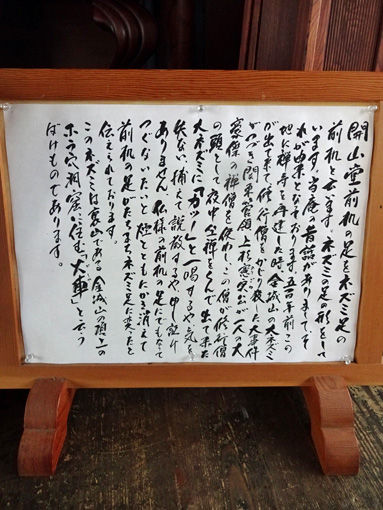 開山堂前机の足をネズミ足の
前机と云ます。ネズミの足の形をして
います。当庵の昔話が有りまして、そ
れが由来となっております。五百年前この
地に禅寺を再建した時 金城山の大ネズミ
が出て来て修行僧をかじり殺した大事件
がつづき関東管領上杉憲実公が一人の大
豪傑の禅僧を使わし、この僧が修行僧
の頭として夜中坐禅をくんで出て来た
大ネズミに「カッーと」一喝するや気を
失ない、捕えて説教するや、申し訳け
ありません 仏様の前机の足にでもなって
つぐないたいと 煙とともにかき消えて
前机の足がたちまちネズミ足に変ったと
伝えられております。
このネズミは裏山である金城山の頂上の
ホラ穴洞窟に住む「大車」と云う
ばけものであります。